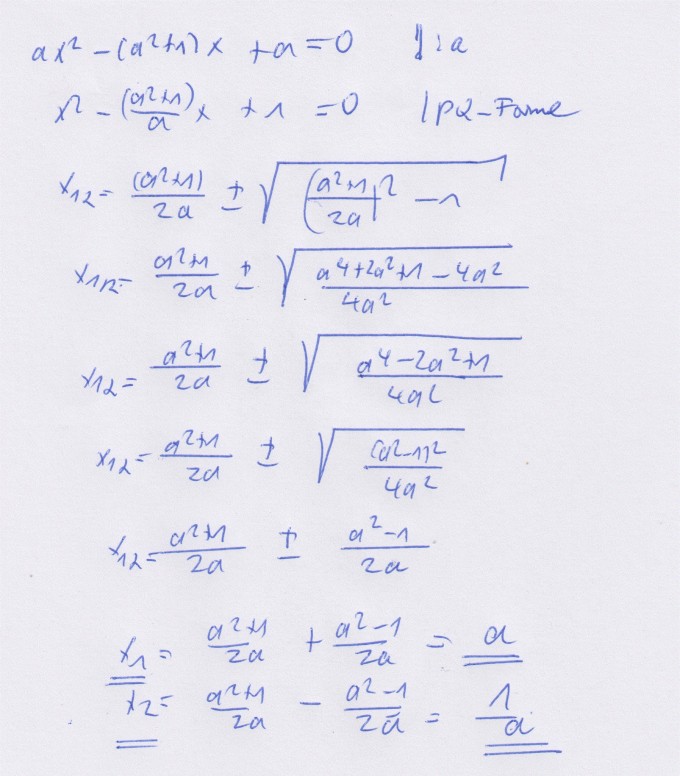 ax² - (a²+1)x + a = 0 | :a
x² - (a²+1)/a x + 1 = 0 | PQ-Formel
x₁₂ = (a²+1)/2a ± √(((a²+1)/2a)² - 1)
x₁₂ = (a²+1)/2a ± √((a⁴+2a²+1-4a²)/4a²)
x₁₂ = (a²+1)/2a ± √((a⁴-2a²+1)/4a²)
x₁₂ = (a²+1)/2a ± √((a²-1)²/4a²)
x₁₂ = (a²+1)/2a ± (a²-1)/2a
x₁ = (a²+1)/2a + (a²-1)/2a = a
x₂ = (a²+1)/2a - (a²-1)/2a = 1/a